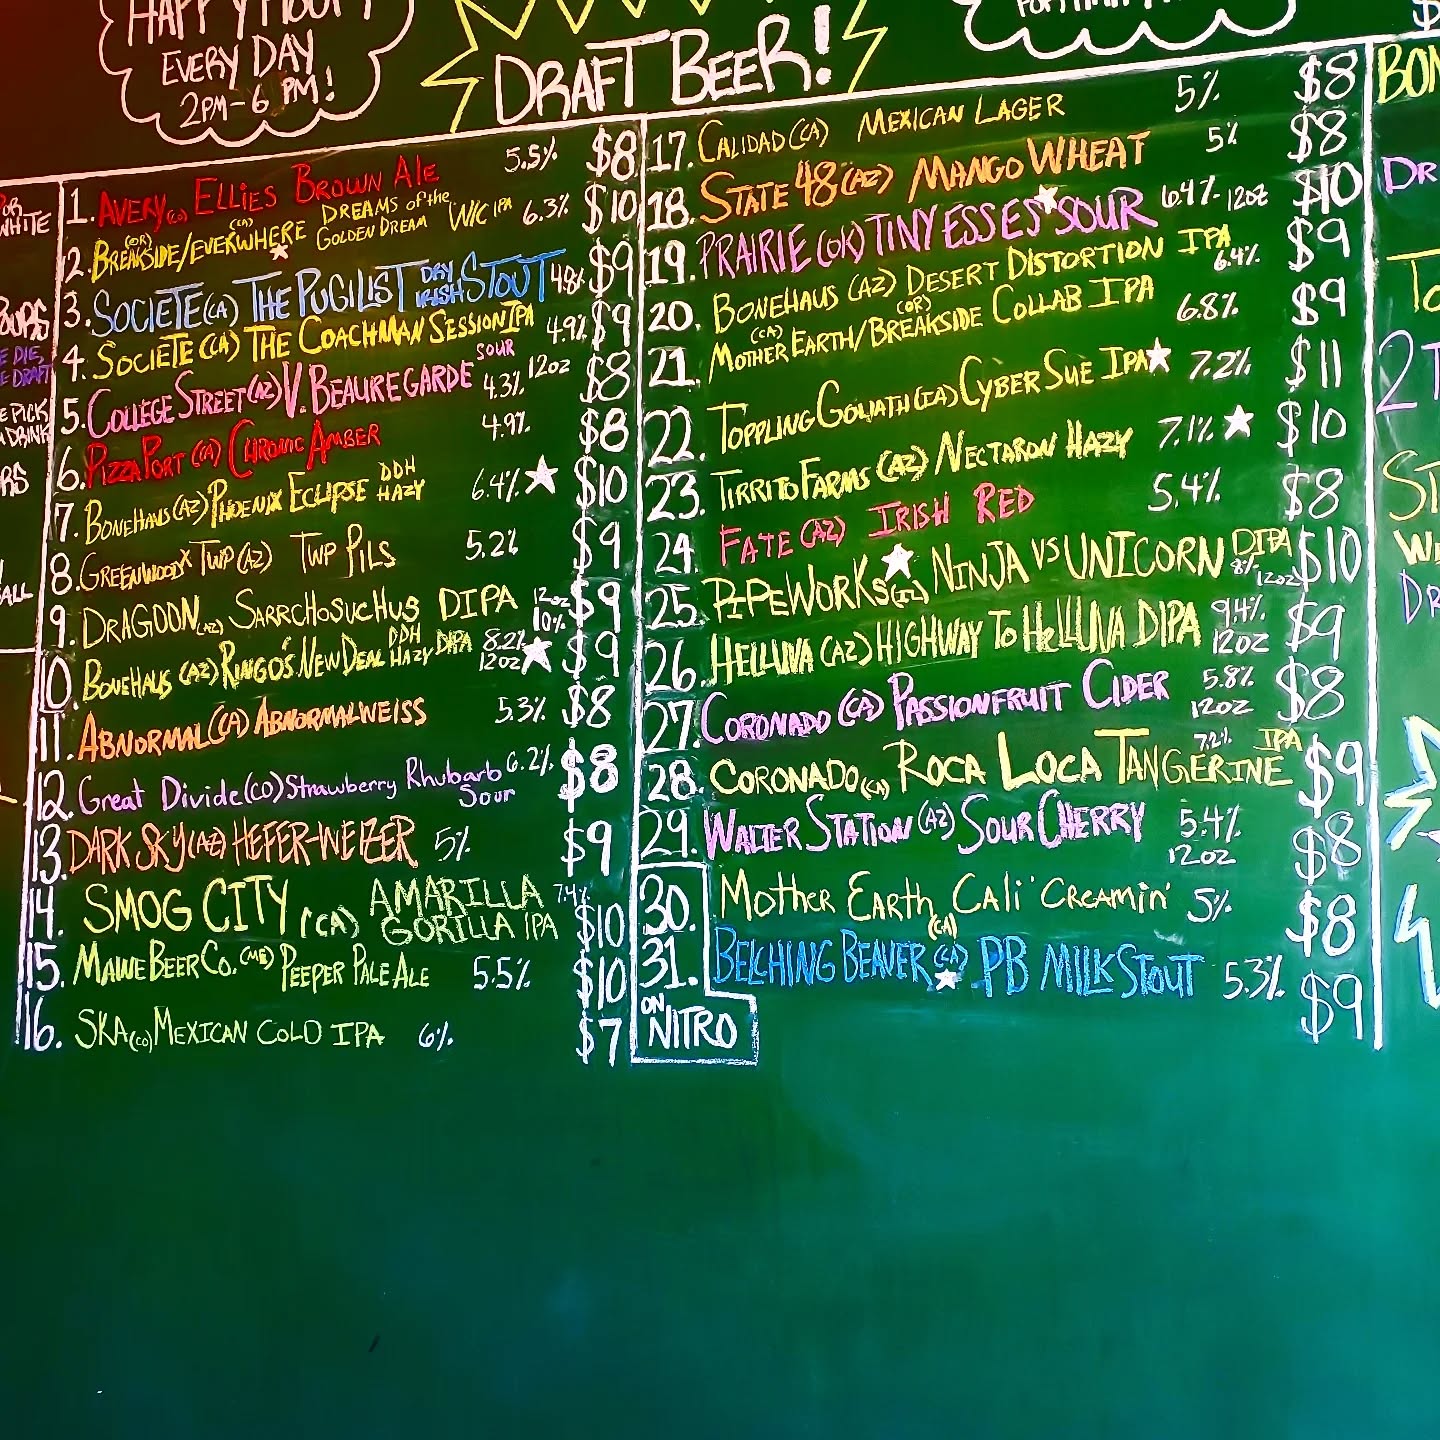 HAPPY HOUR
EVERY DAY
2PM-6 PM!
DRAFT BEER!
1. AVERY(CO) ELLIES BROWN ALE 5.5% $8
2. BREAKSIDE(OR)/EVERWHERE(CA) DREAMS of the GOLDEN DREAM W/C IPA 6.3% $10
3. SOCIETE(CA) THE PUGILIST DRY IRISH STOUT 4.8% $9
4. SOCIETE (CA) THE COACHMAN SESSION IPA 4.9% $9
5. COLLEGE STREET(AZ) V. BEAUREGARDE SOUR 4.3% 12OZ $8
6. PIZZA PORT (CA) CHRONIC AMBER 4.9% $8
7. BONEHAUS(AZ) PHOENIX ECLIPSE DDH HAZY 6.4% $10
8. GREENWOOD X TWP(AZ) TWP PILS 5.2% $9
9. DRAGOON(AZ) SARRCHOSUCHUS DIPA 12oz 10% $9
10. BONEHAUS (AZ) RINGO'S NEW DEAL DDH HAZY DIPA 8.2% 12OZ $9
11. ABNORMAL(CA) ABNORMALWEISS 5.3% $8
12. Great Divide(CO) Strawberry Rhubarb Sour 6.2% $8
13. DARK SKY(AZ) HEFER-WEIZER 5% $9
14. SMOG CITY (CA) AMARILLA GORILLA IPA 7.4% $10
15. MAINE BEER CO. (ME) PEEPER PALE ALE 5.5% $10
16. SKA(CO) MEXICAN COLD IPA 6% $7
17. CALIDAD(CA) MEXICAN LAGER 5% $8
18. STATE 48(AZ) MANGO WHEAT 5% $8
19. PRAIRIE (OK) TINY ESSES SOUR 6.4% - 12OZ $10
20. BONEHAUS (AZ) DESERT DISTORTION IPA 6.4% $9
21. MOTHER EARTH(CA)/BREAKSIDE(OR) COLLAB IPA 6.8% $9
22. TOPPLING GOLIATH(IA) CYBER SUE IPA 7.2% $11
23. TIRRITO FARMS (AZ) NECTARON HAZY 7.1% $10
24. FATE (AZ) IRISH RED 5.4% $8
25. PIPEWORKS(IL) NINJA VS UNICORN DIPA 8% 12OZ $10
26. HELLUVA (AZ) HIGHWAY TO HELLUVA DIPA 9.4% 12OZ $9
27. CORONADO (CA) PASSIONFRUIT CIDER 5.8% 12OZ $8
28. CORONADO(CA) ROCA LOCA TANGERINE IPA 7.2% $9
29. WALTER STATION (AZ) SOUR CHERRY 5.4% 12OZ $8
30. Mother Earth (CA) Cali 'Creamin' 5% $8
31. BELCHING BEAVER (CA) PB MILK STOUT 5.3% $9
ON NITRO